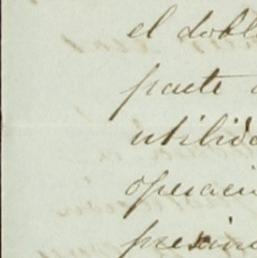 el dobl
parte
utilida
operaci